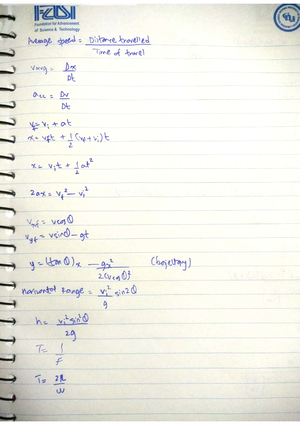 FAST
Foundation for Advancement
of Science & Technology
Average speed = Distance travelled / Time of travel
vavg = Dx / Dt
acc = Dv / Dt
vf = vi + at
x = vft + 1/2 (vf + vi)t
x = vit + 1/2 at²
2ax = vf² - vi²
vxf = vcosθ
vyf = vsinθ - gt
y = (tanθ)x - gx² / 2(vcosθ)² (trajectory)
horizontal Range = vi² sin2θ / g
h = vi² sin²θ / 2g
T = 1 / f
T = 2π / ω